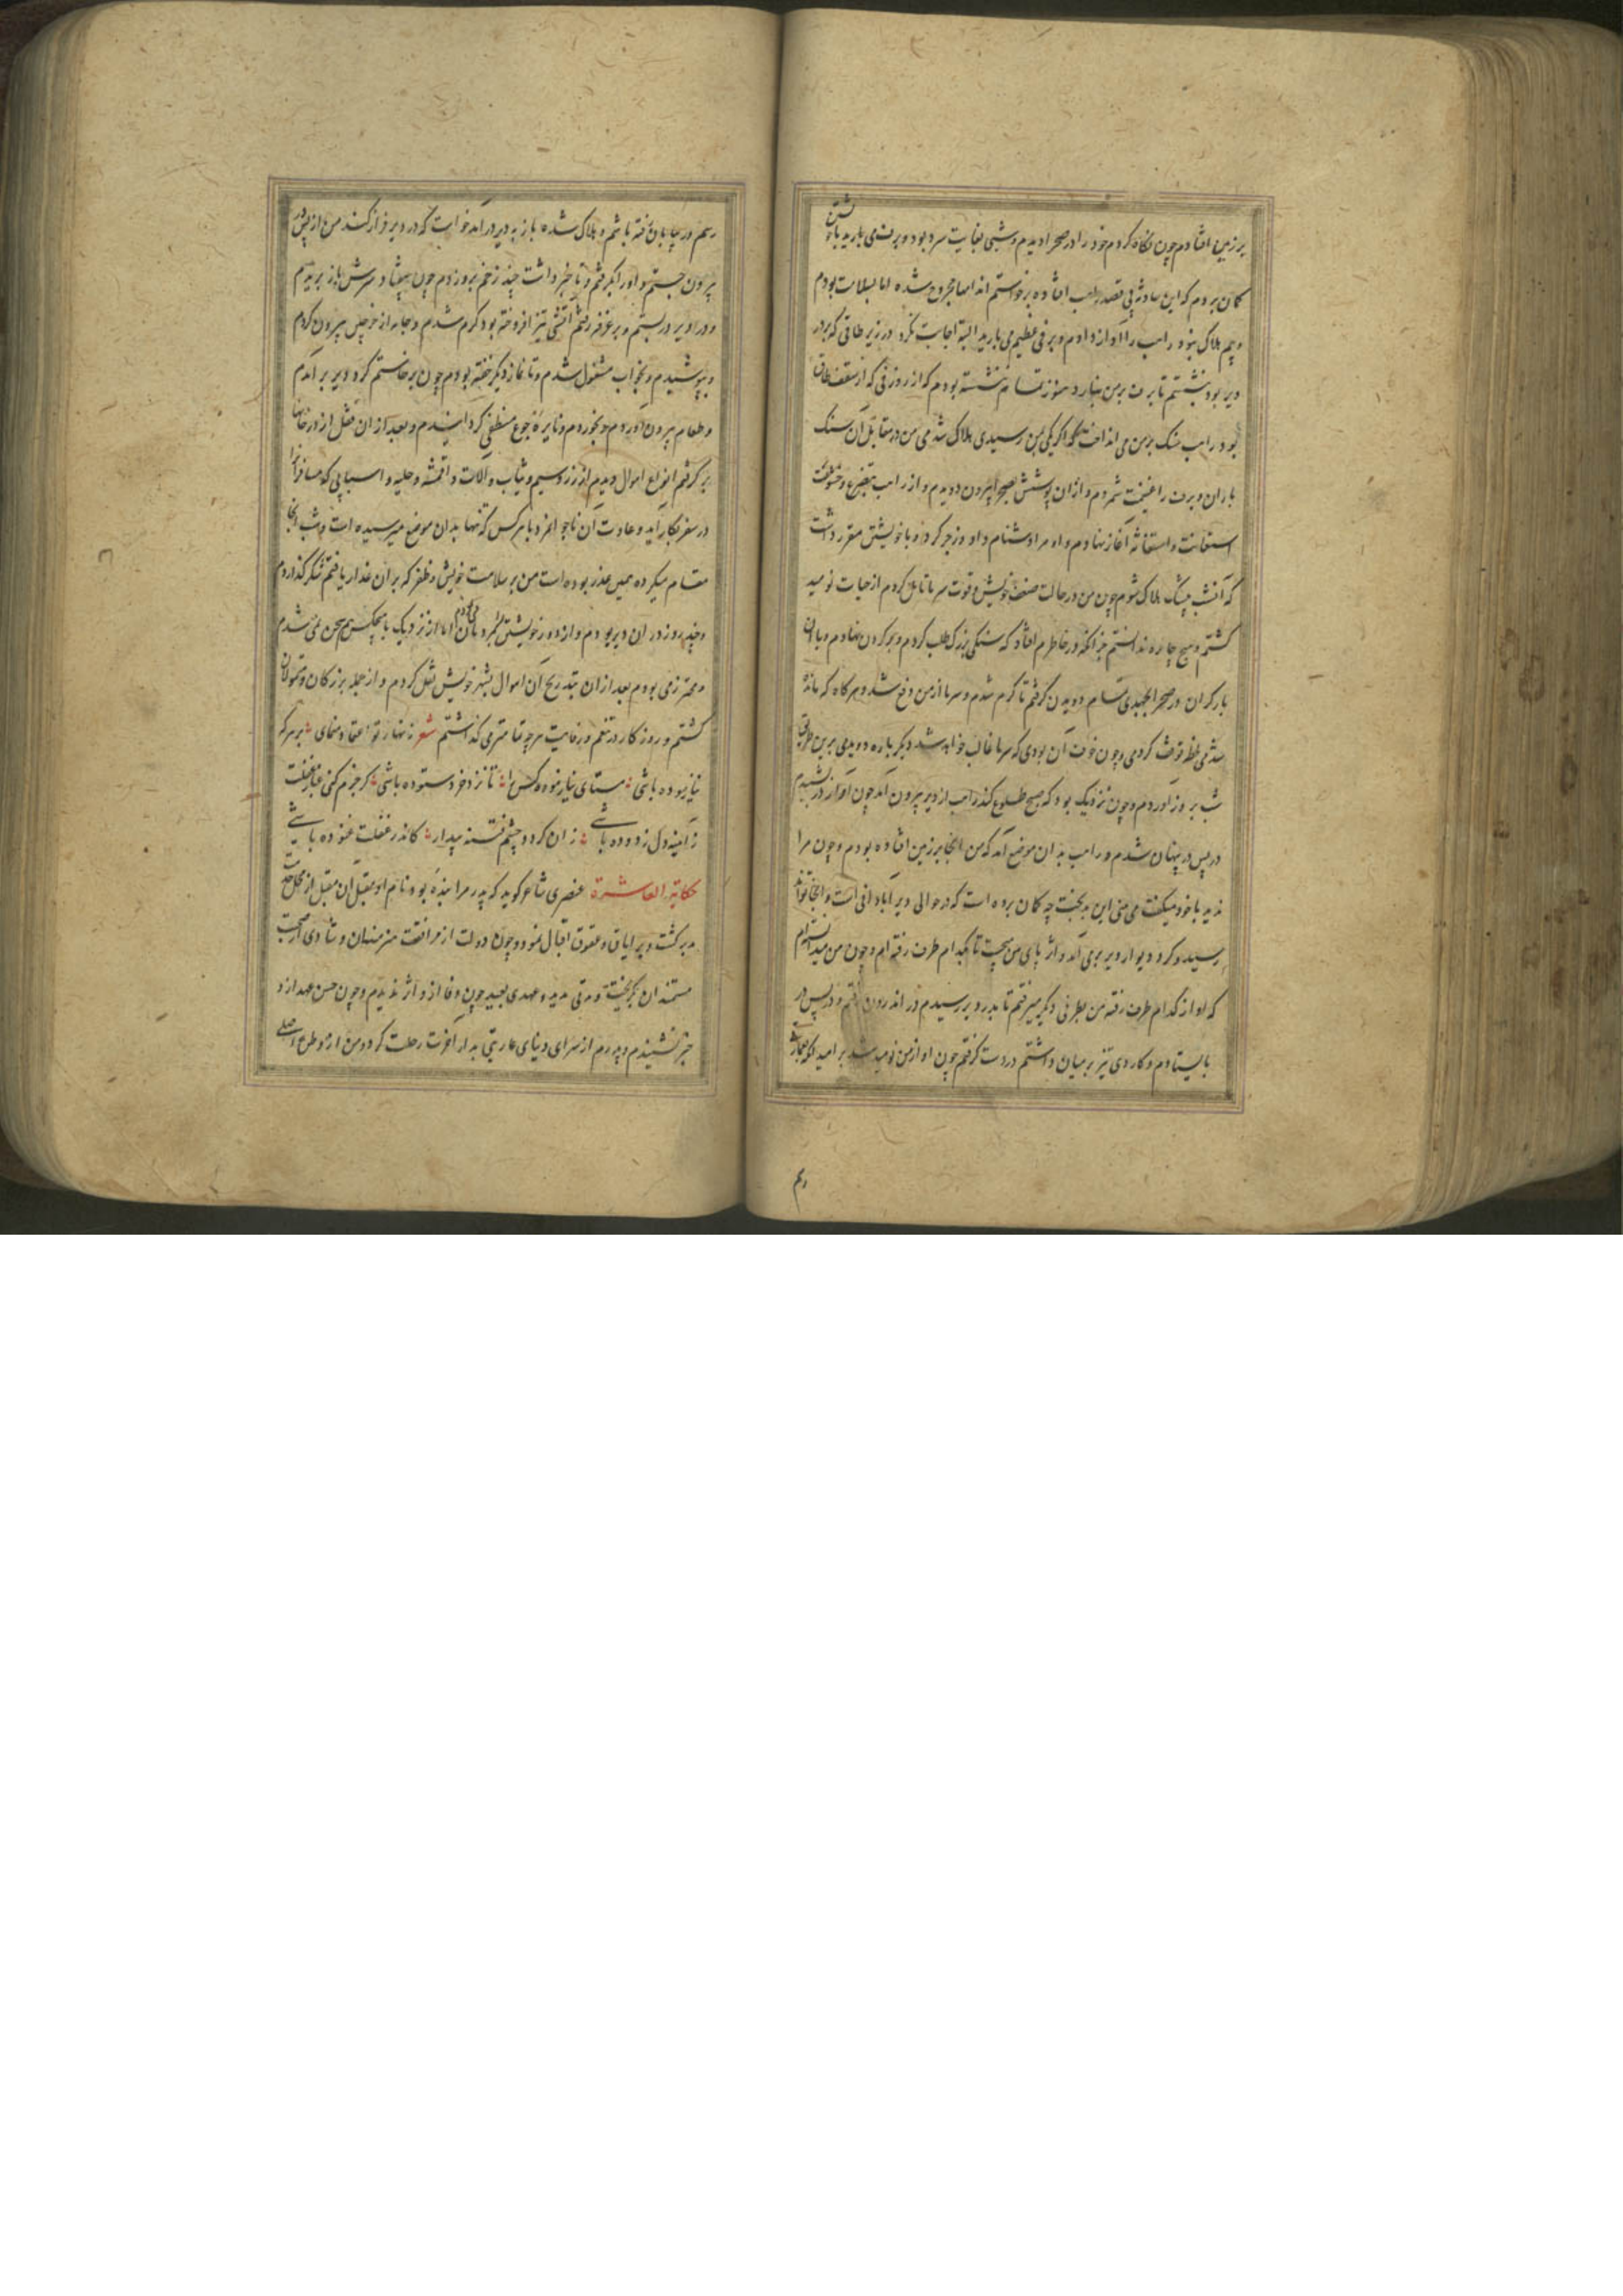 بر زمین افتادم چون نگاه کردم خود را در صحرا دیدم و شبی بغایت سرد بود و برف می بارید با خویشتن
کمان بردم که این حادثه بی قصد راهب افتاده برخواستم اندامها مجروح شده اما بسلامت بودم
و بیم هلاک نبود راهب را آواز دادم و برفی عظیم می بارید البته اجابت نکرد در زیر طاقی که بر در
دیر بود بنشستم تا برف بر من نبارد هنوز تمام ننشسته بودم که از روزنی که از سقف طاق
بود راهب سنک بر من می انداخت که اکر یکی بمن رسیدی هلاک شدمی من در مقابل آن سنک
باران و برف را غنیمت شمردم و از ان پوشش بصحرا بیرون دویدم و از راهب بتضرع و خشونت
استعانت و استغاثه آغاز نهادم و او مرا دشنام داد و زجر کرد و با خویشتن مقرر داشت
که آن شب بیشک هلاک شوم چون من در حالت ضعف خویش و قوت سرما تامل کردم از حیات نومید
کشتم و هیچ چاره ندانستم جز آنکه در خاطرم افتاد که سنکی بزرک طلب کردم و بر کردن نهادم و با ان
بار کران در صحرا بجهدی تمام دویدن کرفتم تا کرم شدم و سرما از من دفع شد و هر کاه که مانده
شدمی لحظه توقف کردمی و چون خوف آن بودی که سرما غالب خواهد شد دیکر باره دویدمی برین طریق
شب بروز آوردم و چون نزدیک بود که صبح طلوع کند راهب از دیر بیرون آمد چون آواز در شنیدم
در پس در پنهان شدم و راهب بدان موضع آمد که من انجا بر زمین افتاده بودم و چون مرا
ندید با خود میکفت می بینی این بدبخت چه کمان برده است که در حوالی دیر آبادانی است و انجا تواند
رسید و کرد دیوار دیر بر می آمد و اثر پای من میجست تا بکدام طرف رفته ام و چون من میدانستم
که او از کدام طرف رفته من بطرفی دیکر میرفتم تا بدر دیر رسیدم در اندرون رفتم و در پس در
بایستادم و کاردی تیز بر میان داشتم در دست کرفتم چون او از من نومید شد بر امید آنکه بعمارت
رسم در بیابان خفته باشم و هلاک شده باز به دیر در آمد خواست که در دیر فراز کند من از پس در
بیرون جستم و او را بکرفتم و تا خبر داشت چند زخم برو زدم چون بیفتاد سرش باز بریدم
و در دیر در بستم و بر غرفه رفتم آتشی تیز افروخته بود کرم شدم و جامه از خرجین بیرون کردم
و بپوشیدم و بخواب مشغول شدم و تا نماز دیکر خفته بودم چون برخاستم کرد دیر بر آمدم
و طعام بیرون آوردم و بخوردم و نایره جوع منطفی کردانیدم و بعد از ان قفل از در خانها
بر کرفتم انواع اموال دیدم از زر و سیم و ثیاب و آلات و اقمشه و حلیه و اسبابی که مسافر را
در سفر بکار آید و عادت آن ناجوانمرد با هر کس که تنها بدان موضع میرسیده است و شب آنجا
مقام میکرده همین غدر بوده است من بر سلامت خویش و ظفر که بر ان غدار یافتم شکر کذاردم
و چند روز در ان دیر بودم و از دور خویشتن بمردمان می نمودم اما از نزدیک با هیچکس هم سخن نمی شدم
و محترز می بودم بعد از ان بتدریج آن اموال بشهر خویش نقل کردم و از جمله بزرکان و متمولان
کشتم و روزکار در تنعم و رفاهیت هرچه تمامتر می کذاشتم شعر زنهار تو اعتماد منمای : بر هر که
نیازموده باشی : مستای نیازموده کس را : تا نزد خرد ستوده باشی : کر جزم کنی غبار غفلت
ز آیینه دل زدوده باشی : زان کرد دو چشم فتنه بیدار : کاندر غفلت غنوده باشی
حکایة العاشرة عنصری شاعر کوید که پدر مرا بنده بود و نام او مقبل آن مقبل از محل خدمت
مدبر کشت و بر اباق و عقوق اقبال نمود و چون دولت از مرافقت هنرمندان و شادی از صحبت
مستمندان بکریخت و مدتی مدید و عهدی بعید چون وفا ازو اثر ندیدیم و چون حسن عهد ازو
خبر نشنیدم و پدرم از سرای دنیای عاریتی بدار آخرت رحلت کرد و من از وطن اصلی
رسم